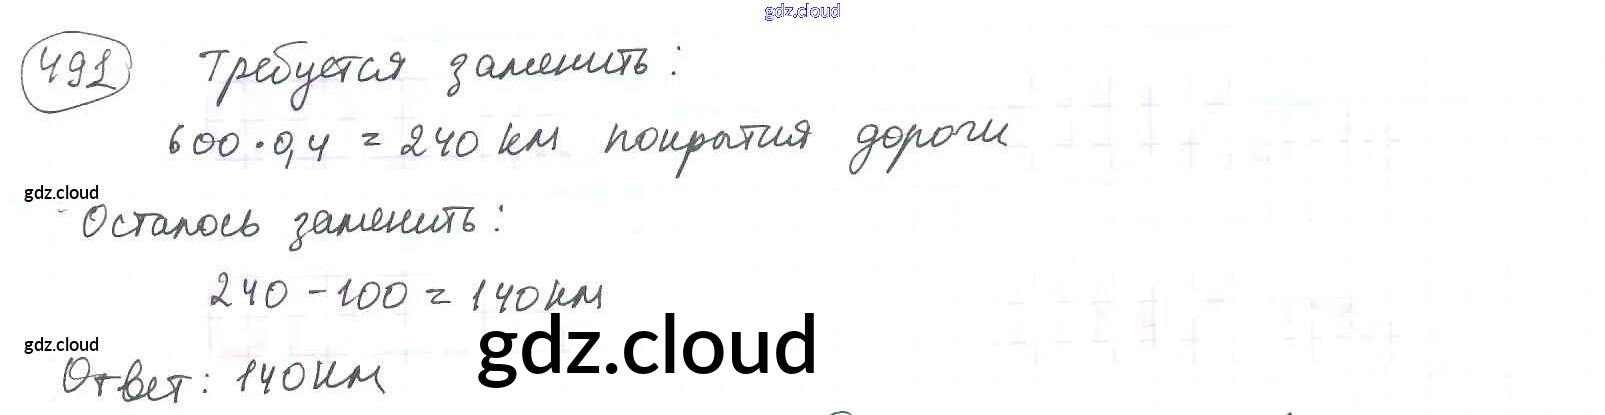 gdz.cloud
491 Требуется заменить:
600·0,4 = 240 км покрытия дороги
gdz.cloud
Осталось заменить:
240 - 100 = 140 км
gdz.cloud
gdz.cloud
Ответ: 140 км